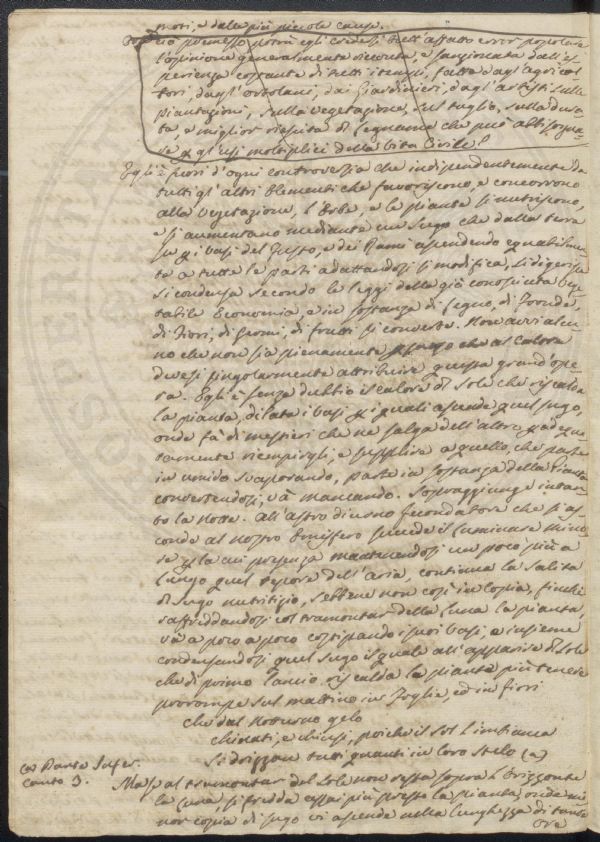 moti, e dalle più piccole cause.
Ciò premesso potrà egli credersi dell'affatto error popolare
l'opinione generalmente ricevuta, e sanzionata dall'es=
perienza costante di tutti i tempi, fatta dagl'agricol=
tori, dagl'ortolani, dai Giardinieri, dagl'artisti sulle
piantazioni, sulla vegetazione, sul taglio, sulla dura=
ta, e miglior riuscita di legname che può abbisogna=
re p. gl'usi moltiplici della Vita Civile?
Egli è fuori d'ogni controversia che indipendentemente da
tutti gl'altri Elementi che favoriscono, e concorrono
alla vegetazione, l'Erbe, e le piante si nutriscono,
e si aumentano mediante un sugo che dalla terra
su p. i vasi del Fusto, e dei Rami ascendendo equabilmen
te a tutte le parti adattandosi si modifica, si digerisce
si condensa secondo le leggi della già conosciuta vege
tabile Economia, e in sostanza di legno, di fronde,
di Fiori, di germi, di frutti si converte. Non avvi alcu=
no che non sia pienamente che al Calore
devesi singolarmente attribuire questa grand'ope=
ra. Egli è senza dubbio il calore del Sole che riscalda
la pianta, dilata i vasi p. i quali ascende quel sugo,
onde fà di mestieri che ne salga dell'altro p. adequa=
tamente riempirgli, e supplire a quello, che parte
in umido svaporando, parte in sostanza della Pianta
convertendosi, và mancando. Sopraggiunge intan=
to la notte. All'astro diurno fecondatore che si as=
conde al nostro Emisfero succede il luminare mino=
re p. la cui presenza mantenendosi un poco più a
lungo quel tepore dell'aria, continua la salita
di sugo nutritizio, sebbene non così in copia, finchè
raffreddandosi col tramontar della luna la pianta,
và a poco a poco costipando i suoi vasi, e insieme
condensandosi quel sugo il quale all'apparire del Sole
che di primo lancio riscalda le piante più tenere
prorompe sul mattino in foglie, ed in fiori
che dal notturno gelo
chinati, e chiusi, poichè il sol l'imbianca
si drizzan tutti quanti in loro stelo (a)
(a) Dante Infer.
canto 3.
Ma se al tramontar del Sole non resta sopra l'Orizzonte
la luna, si fredda assai più presto la pianta, onde mi
nor copia di sugo vi ascende nella lunghezza di tante
ore